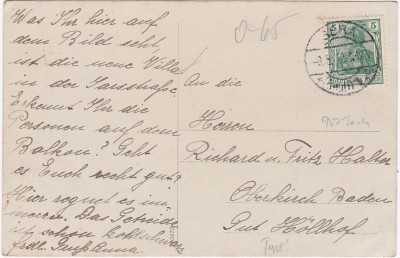 Was Ihr hier auf
dem Bild seht,
ist die neue Villa
in der Saarstraße.
Erkennt Ihr die
Personen auf dem
Balkon? Geht
es Euch recht gut?
Hier regnet es im-
mer. Das Getreide
ist schon kohlschwarz
frdl. Gruß Anna.
An die
Herren
Richard u. Fritz Halter
Oberkirch Baden
Gut Höllhof
5